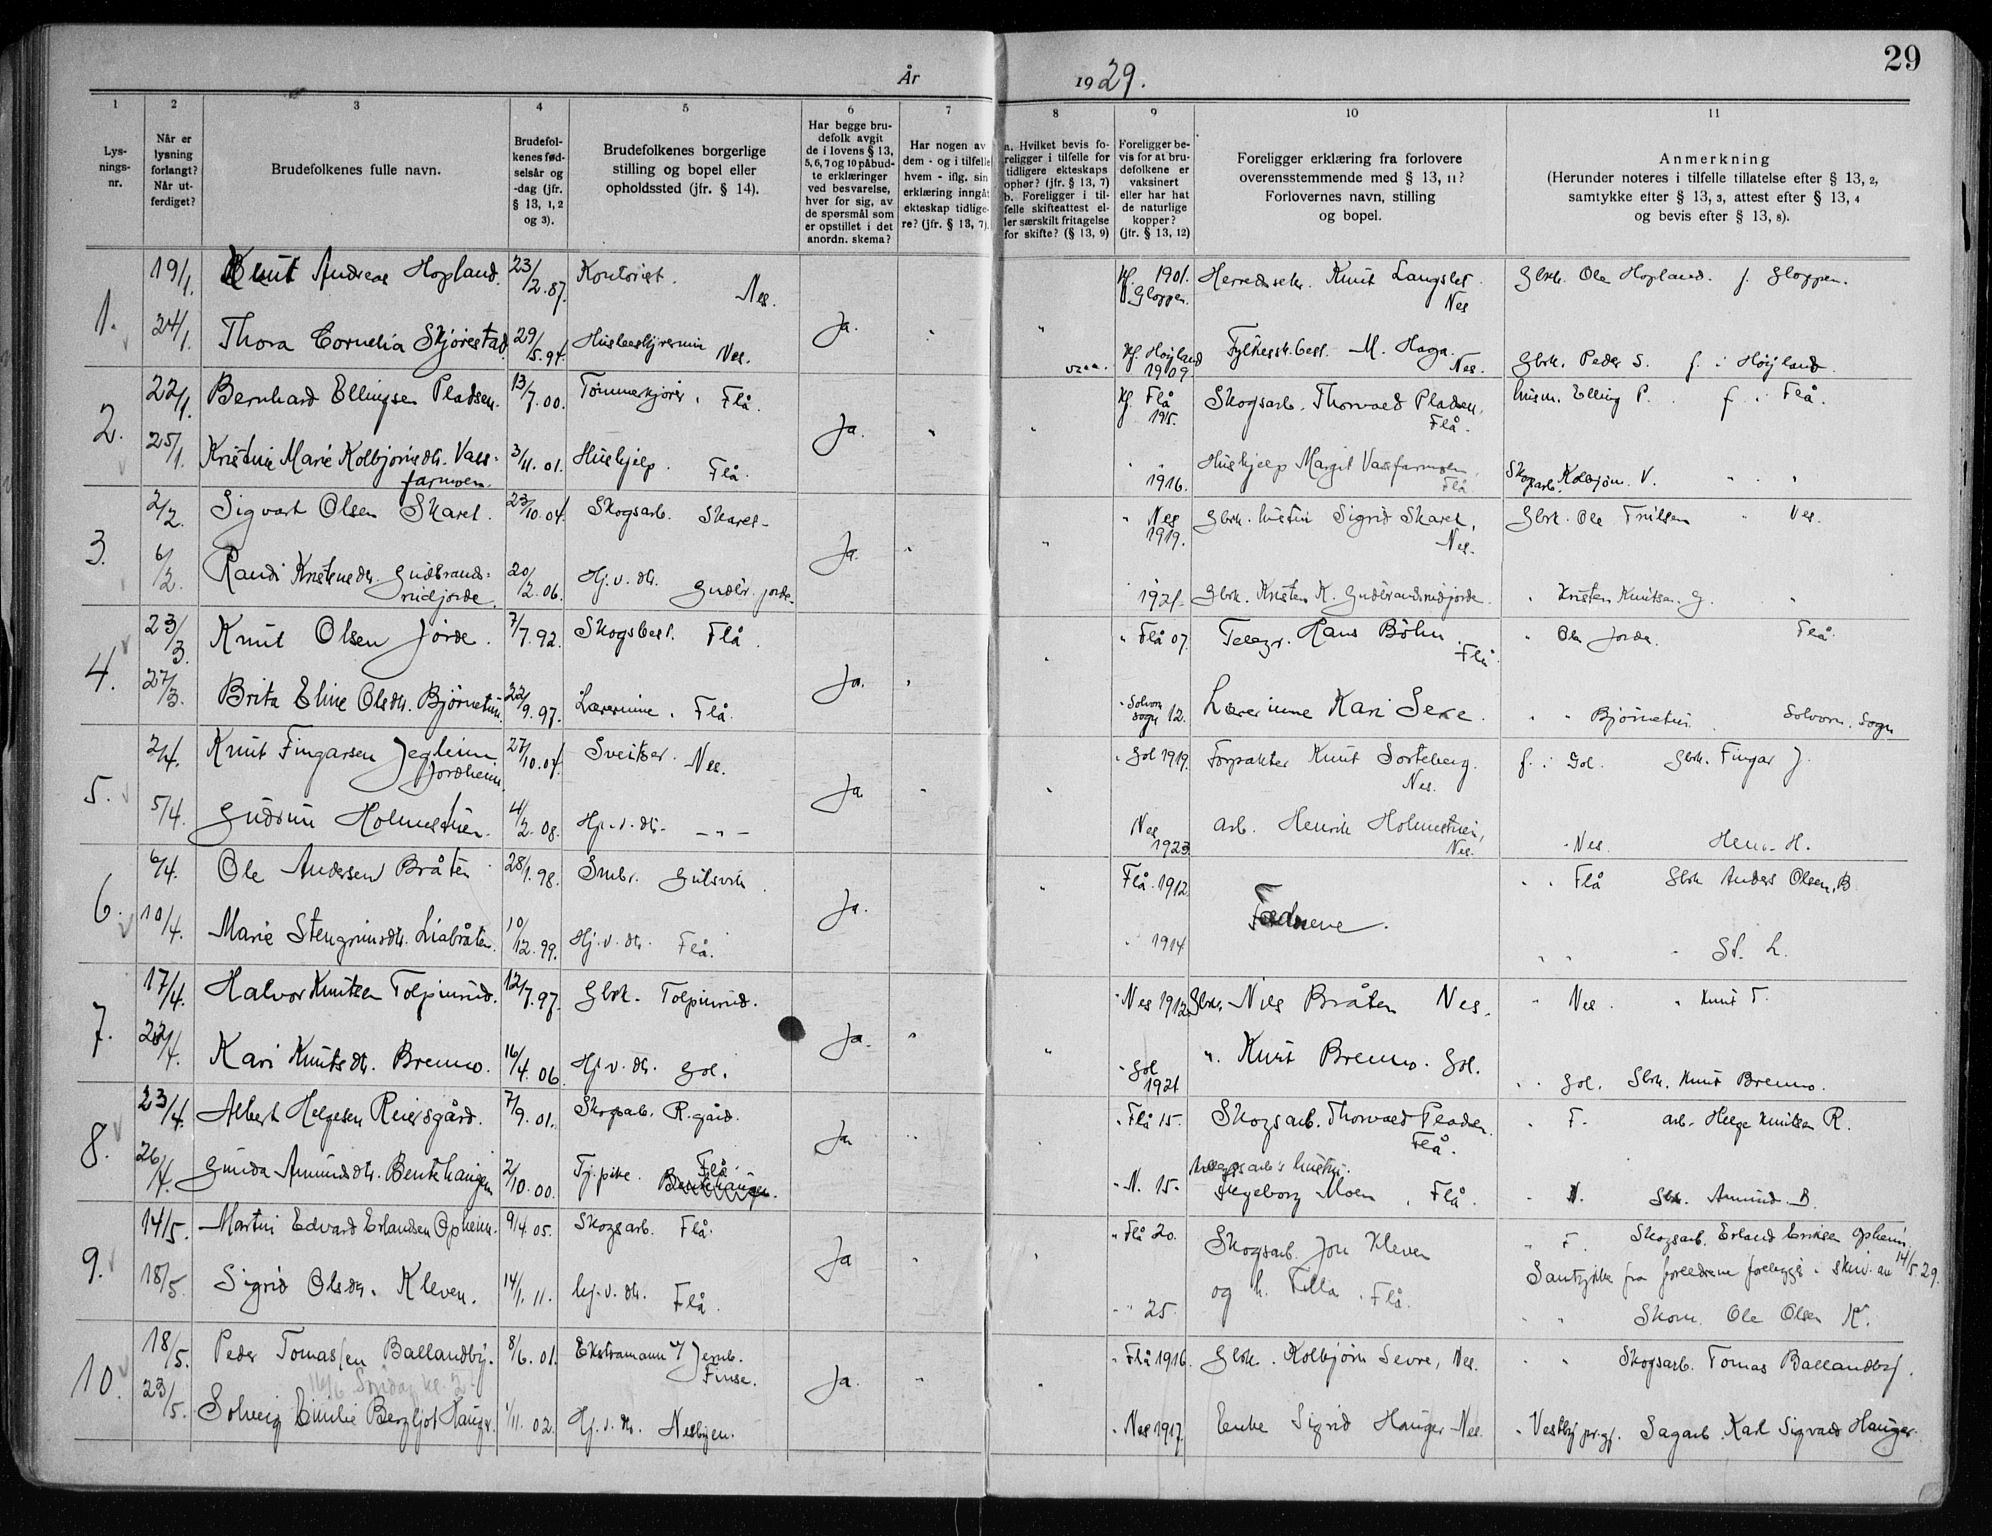 29
År 1929.
1 2 3 4 5 6 7 8 9 10 11
Lys-
nings-
nr.
Når er
lysning
forlangt?
Når ut-
ferdiget?
Brudefolkenes fulle navn.
Brudefol-
kenes fød-
selsår og
-dag (jfr.
§ 13, 1, 2
og 3).
Brudefolkenes borgerlige
stilling og bopel eller
opholdssted (jfr. § 14).
Har begge bru-
defolk avgit
de i lovens § 13,
5, 6, 7 og 10 påbud-
te erklæringer
ved besvarelse,
hver for sig, av
de spørsmål som
er opstillet i det
anordn. skema?
Har nogen av
dem - og i tilfelle
hvem - iflg. sin
erklæring inngåt
ekteskap tidlige-
re? (jfr. § 13, 7).
a. Hvilket bevis fo-
religger i tilfelle for
tidligere ekteskaps
ophør? (jfr. § 13, 7)
b. Foreligger i til-
felle skifteattest el-
ler særskilt fritagelse
for skifte? (§ 13, 9)
Foreligger be-
vis for at bru-
defolkene er
vaksinert
eller har hat
de naturlige
kopper?
(jfr. § 13, 12)
Foreligger erklæring fra forlovere
overensstemmende med § 13, 11?
Forlovernes navn, stilling
og bopel.
Anmerkning
(Herunder noteres i tilfelle tillatelse efter § 13, 2,
samtykke efter § 13, 3, attest efter § 13, 4
og bevis efter § 13, 8).
1. 19/1. Knut Andreas Hopland. 23/2.87. Kontorist. Nes. Ja. Kf. 1901. Gloppen. Herredssekr. Knut Langslet Nes Gbrk. Ole Hopland. f. Gloppen.
24/1. Thora Cornelia Skjørestad 29/5.94. Husbestyrerinne Nes. Kf. Høyland 1909. Fylkessk.best. M. Haga. Nes. Gbrk. Peder S. f. i Høyland.
2. 22/1. Bernhard Ellingsen Pladsen. 13/7.00. Tømmerkjører, Flå. Ja. Kf. Flå 1915. Skogsarb. Thorvald Pladsen, Flå. husm. Elling P. f. i Flå.
25/1. Kristine Marie Kolbjørnsdtr. Vass-
farmoen. 3/11.01. Hushjelp. Flå. " " 1916. Hushjelp Margit Vassfarmoen, Flå Skogsarb. Kolbjørn V. " . "
3. 2/2. Sigvart Olsen Skaret. 23/10.04. Skogsarb. Skaret- Ja. " Nes 1919. Gbrk. hustru Sigrid Skaret, Nes. Gbrk. Ole Truelsen " Nes.
6/2. Randi Kristensdtr. Gudbrands-
rudjorde. 20/2.06. Hj.v. dtr. Gudbr. jorde. 1921. Gbrk. Kristen K. Gudbrandsrudjorde. " Kristen Knutsen G. "
4. 23/3. Knut Olsen Jorde. 7/7.92. Skogsbest. Flå. Ja. " Flå 07. Telegr. Hans Böhn. Flå " Ole Jorde. Flå.
27/3. Brita Eline Olsdtr. Bjørnetun. 22/9.97. Lærerinne. Flå. " Solvorn sogn 12. Lærerinne Kari Sexe. " " Bjørnetun Solvorn. Sogn
5. 2/4. Knut Fingarsen Jegleim
Jordheim 27/10.04. Sveitser. Nes. Ja " Gol 1919. Forpakter Knut Sorteberg. Nes. f. i Gol. Gbrk. Fingar J.
5/4. Gudrun Holmestuen. 4/2.08. Hj.v. dtr. — " — Nes 1923. arb. Henrik Holmestuen, Nes. " Nes. Henr. H.
6. 6/4. Ole Andersen Bråten 28/1.98. Smbr. Gulsvik. Ja. Flå. 1912. Fædrene. " " Flå Gbrk Anders Olsen, B
10/4. Marie Stengrimsdtr. Liabråten. 10/12.99. Hj.v. dtr. Flå. " 1914 " " " St. L.
7. 17/4. Halvor Knutsen Tolpinrud. 12/7.97. Gbrk. Tolpinrud. Ja. " Nes 1912. Gbrk. Nils Bråten Nes. " Nes. " Knut T.
22/4. Kari Knutsdtr. Brenno. 16/4.06. Hj.v. dtr. Gol. " Gol 1921 ". Knut Brenno. Gol. " " Gol. Gbrk. Knut Brenno.
8. 23/4. Albert Helgesen Reiersgård. 7/9.01. Skogsarb. R.gård. Ja " Flå 15. Skogsarb. Thorvald Pladsen. Flå. " F. arb. Helge Knutsen R.
26/4. Gunda Amundsdtr. Bentehaugen 2/10.00. Tj.pike. Flå Bentehaugen. " N. 15. Skogsarb's hustru Ingeborg Moen, Flå. " N. Gbr. Amund B.
9. 14/5. Martin Edvard Erlandsen Opheim. 9/4.05. Skogsarb. Flå. Ja " Flå 20. Skogsarb. Jon Kleven " F. Skogsarb. Erland Eriksen Opheim,
Samtykke fra foreldrene foreligger i skriv. av 14/5.29.
18/5. Sigrid Olsdtr. Kleven. 14/1.11. hj.v. dtr. Flå. " " 25. og h. Tilla. Flå. " " Skom. Ole Olsen K.
10. 18/5. Peder Tomassen Ballandby. 8/6.01. Ekstramann v/ Jernb. Finse. Ja. " Flå 1916. Gbrk. Kolbjørn Sevre, Nes. " " Skogsarb. Tomas Ballandby.
16/6 Søndag kl. 2
23/5. Solveig Emilie Bergljot Hauger. 1/11.02. Hj.v. dtr. Nesbyen. " Nes 1917. Enke Sigrid Hauger Nes. " Vestby pr.gj. Sagarb. Karl Sigvard Hauger.